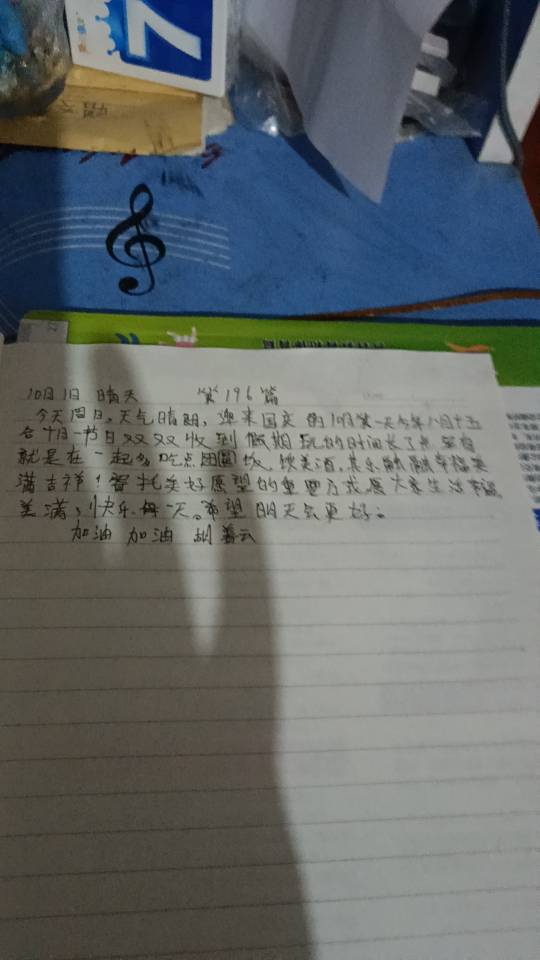 7
10月1日 晴天 第196篇
今天周日,天气晴朗,迎来国庆的10月第一天今年八月十五
合十月一节日双双收到假期玩的时间长了点 幸福
就是在一起多吃点团圆饭,饮美酒,其乐融融幸福美
满吉祥!寄托美好愿望的重要方式愿大家生活幸福,
美满,快乐每一天。希望明天会更好。
加油 加油 胡善云